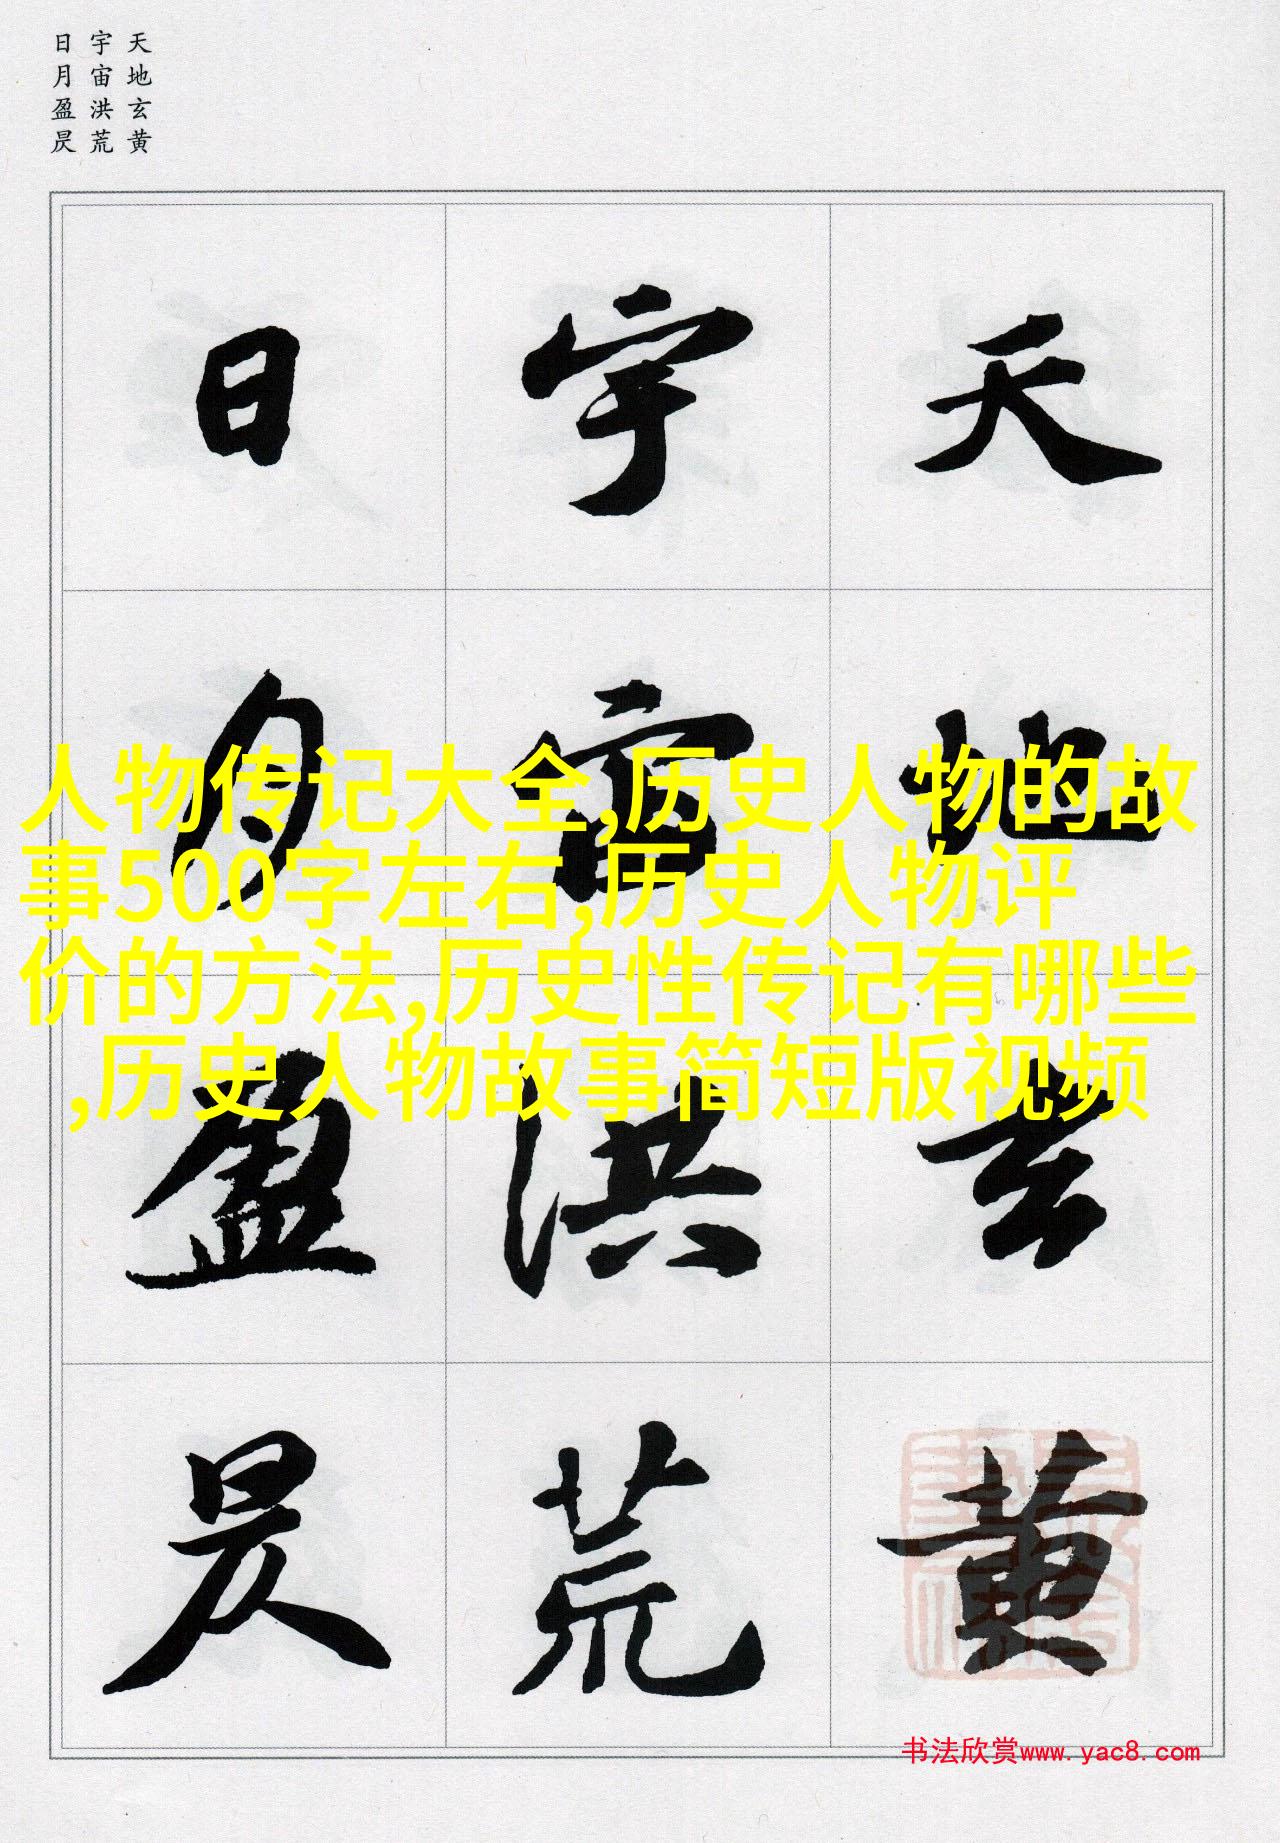 天地玄黄
宇宙洪荒
日月盈昃
天地玄黄
宇宙洪荒
日月盈昃
人物传记大全,历史人物的故
事500字左右,历史人物评
价的方法,历史性传记有哪些
,历史人物故事简短版视频
书法欣赏www.yac8.com